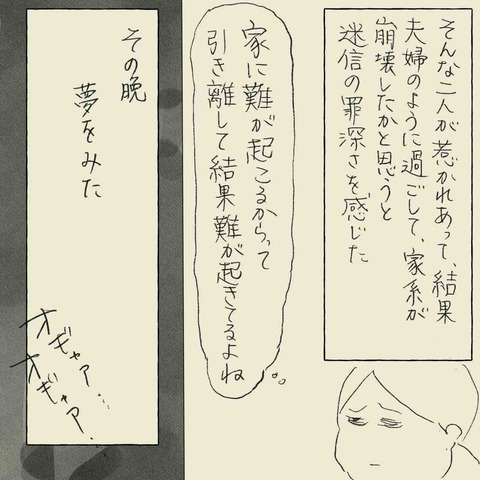 そんな二人が惹かれあって、結果
夫婦のように過ごして、家系が
崩壊したかと思うと
迷信の罪深さを感じた
家に難が起こるからって
引き離して結果難が起きてるよね
その晩
夢をみた
オギャァ…
オギャァー…